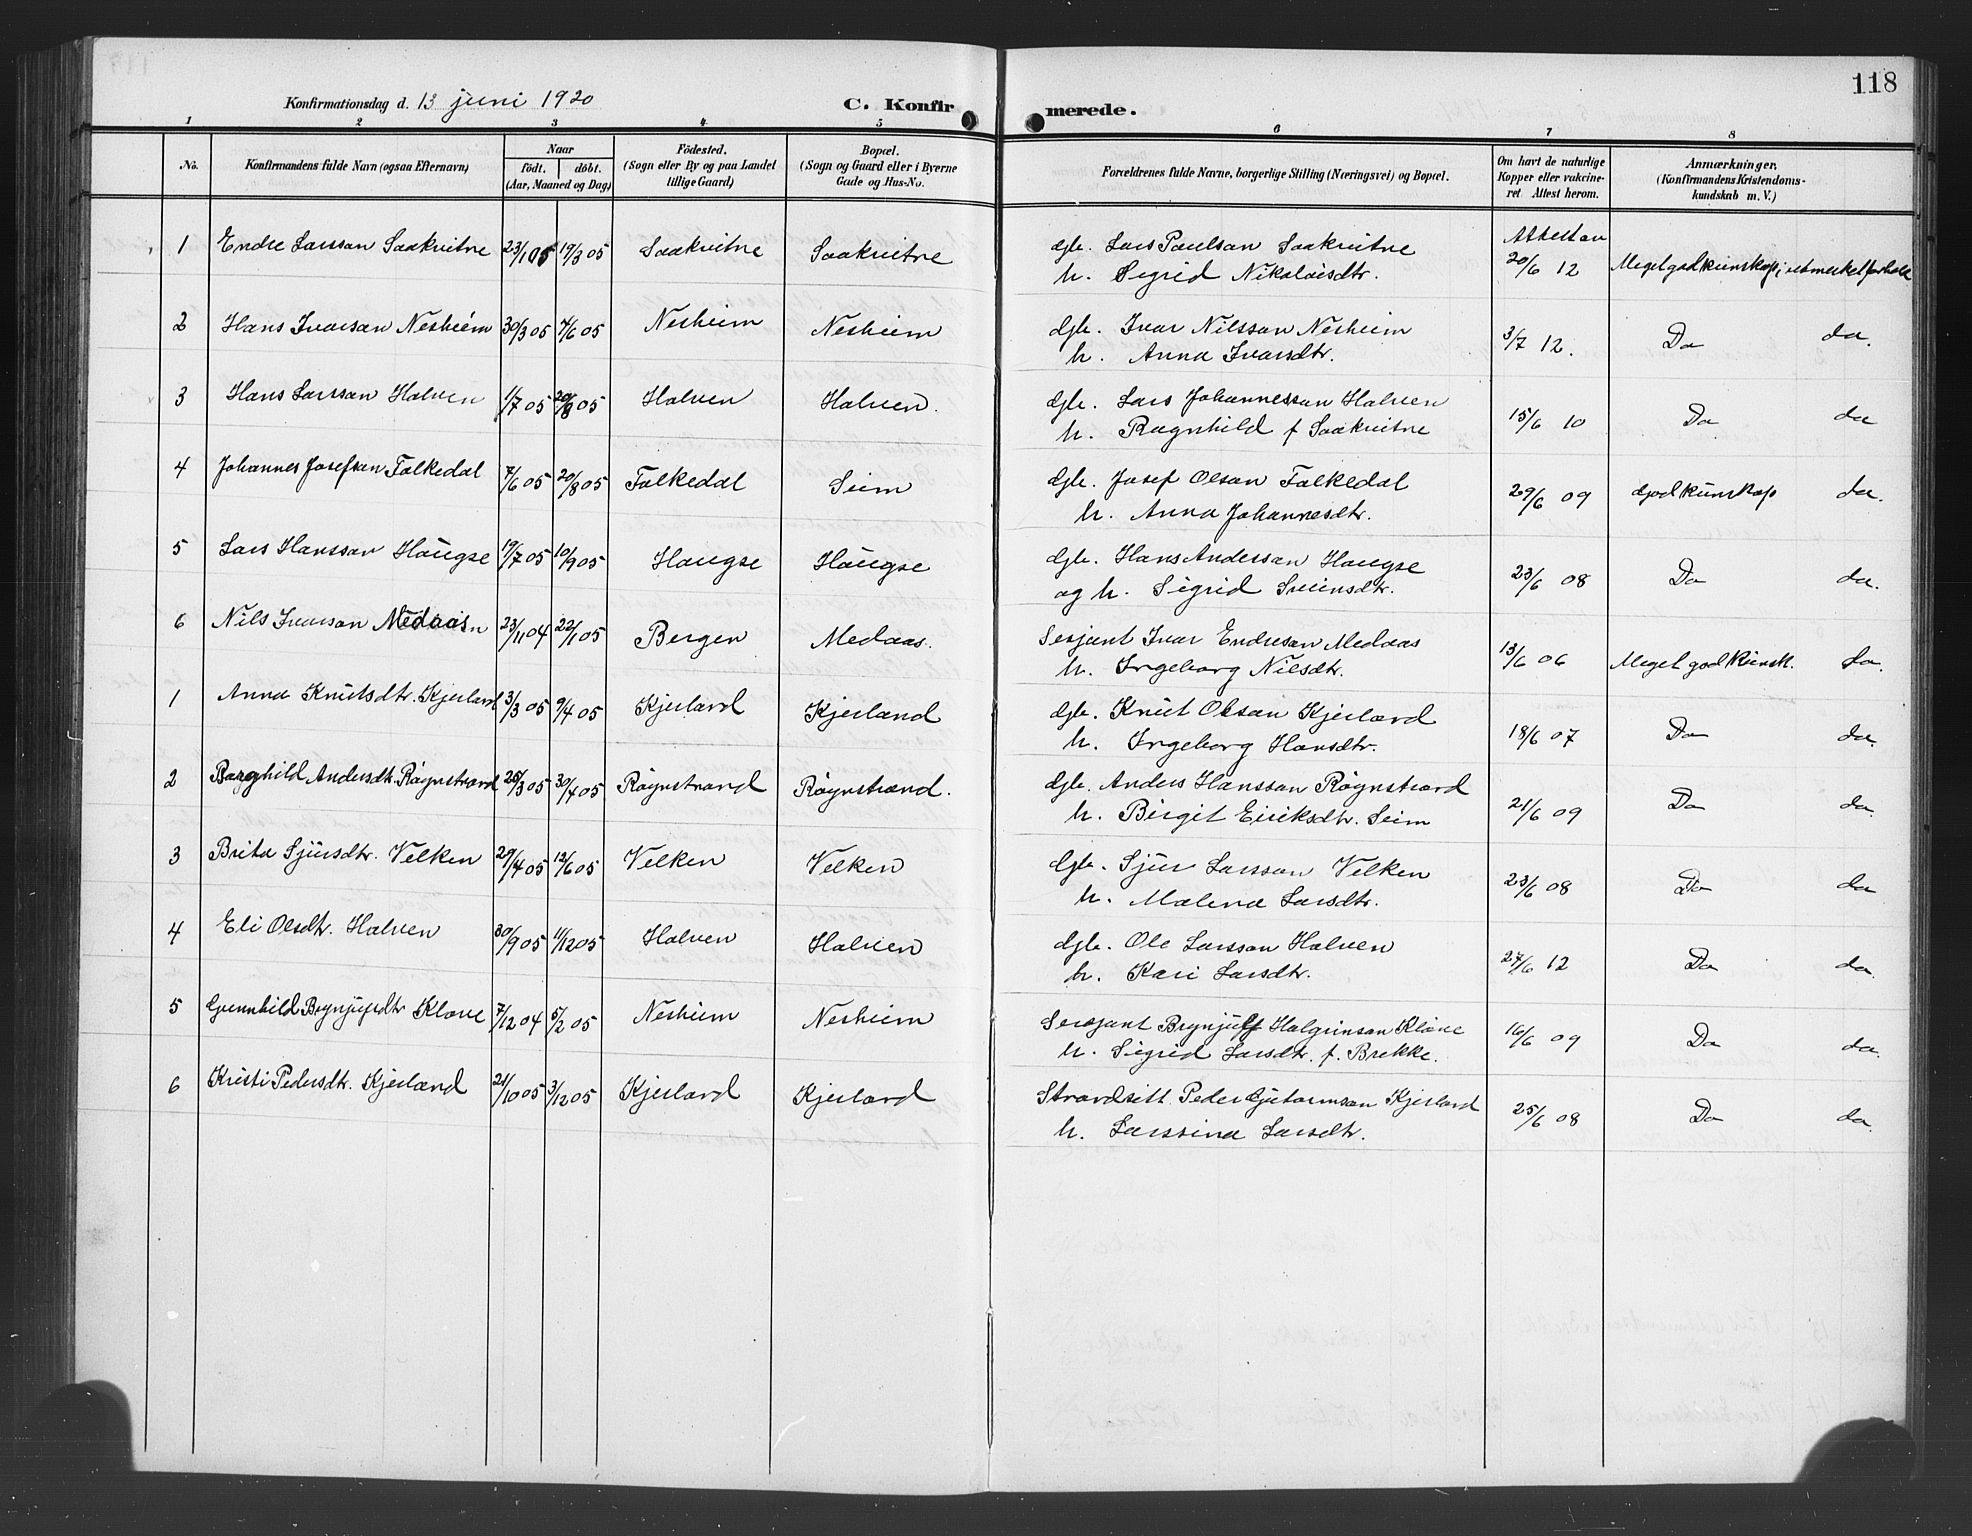 118
Konfirmationsdag d. 13 juni 1920
C. Konfirmerede.
1 2 3 4 5 6 7 8
No. Konfirmandens fulde Navn (ogsaa Efternavn) Naar født. døbt. (Aar, Maaned og Dag) Födested. (Sogn eller By og paa Landet tillige Gaard) Bopæl. (Sogn og Gaard eller i Byerne Gade og Hus-No. Forældrenes fulde Navne, borgerlige Stilling (Næringsvei) og Bopæl. Om havt de naturlige Kopper eller vakcineret Attest herom. Anmærkninger, (Konfirmandens Kristendomskundskab m. V.)
1 Endre Larsson Saakvitne 23/1 05 19/3 05 Saakvitne Saakvitne gb. Lars Paulsan Saakvitne Attest av
h. Sigrid Nikolaisdtr. 20/6 12 Meget god kunskap,
2 Hans Ivarsan Nesheim 30/3 05 4/6 05 Nesheim Nesheim gb. Ivar Nilssan Nesheim
h. Anna Ivarsdtr. 3/7 12. Do do.
3 Hans Larssan Halven 1/7 05 20/8 05 Halven Halven. gb. Lars Johannessan Halven
h. Ragnhild f Saakvitne 15/6 10 Do do
4 Johannes Josefsan Folkedal 7/6 05 20/8 05 Folkedal Seim gb. Josef Olsan Folkedal
h. Anna Johannesdtr. 29/6 09 God kunskap do.
5 Lars Hanssan Haugse 19/7 05 10/9 05 Haugse Haugse gb. Hans Anderssan Haugse
og h. Sigrid Sveinsdtr. 23/6 08 Do do.
6 Nils Ivarsan Medaas 23/11 04 22/1 05 Bergen Medaas. Sersjant Ivar Endresan Medaas
h. Ingeborg Nilsdtr. 13/6 06 Meget god kunsk. do.
1 Anna Knutsdtr. Kjerland 3/3 05 9/4 05 Kjerland Kjerland gb. Knut Olsan Kjerland
h. Ingeborg Hansdtr. 18/6 07 Do do.
2 Borghild Andersdtr. Røynstrand 25/3 05 30/4 05 Røynstrand Røynstrand. gb. Anders Hanssan Røynstrand
h. Birgit Eiriksdtr. Seim 21/6 09 Do do
3 Brita Sjursdtr. Velken 29/4 05 12/6 05 Velken Velken gb. Sjur Larssan Velken
h. Malena Larsdtr. 23/6 08 Do do
4 Eli Olsdtr. Halven 30/9 05 11/12 05 Halven Halven gb. Ole Larssan Halven
h. Kari Larsdtr. 27/6 12 Do do.
5 Gunnhild Brynjulfsdtr Kløve 7/12 04 5/2 05 Nesheim Nesheim Sersjant Brynjulf Halgrimsan Kløve
h. Sigrid Larsdtr. f. Brekke. 16/6 09 Do do.
6 Kristi Pedersdtr. Kjerland 21/10 05 3/12 05 Kjerland Kjerland Strandsitt. Peder Gutormsan Kjerland
h. Larssina Larsdtr. 25/6 08 Do do.